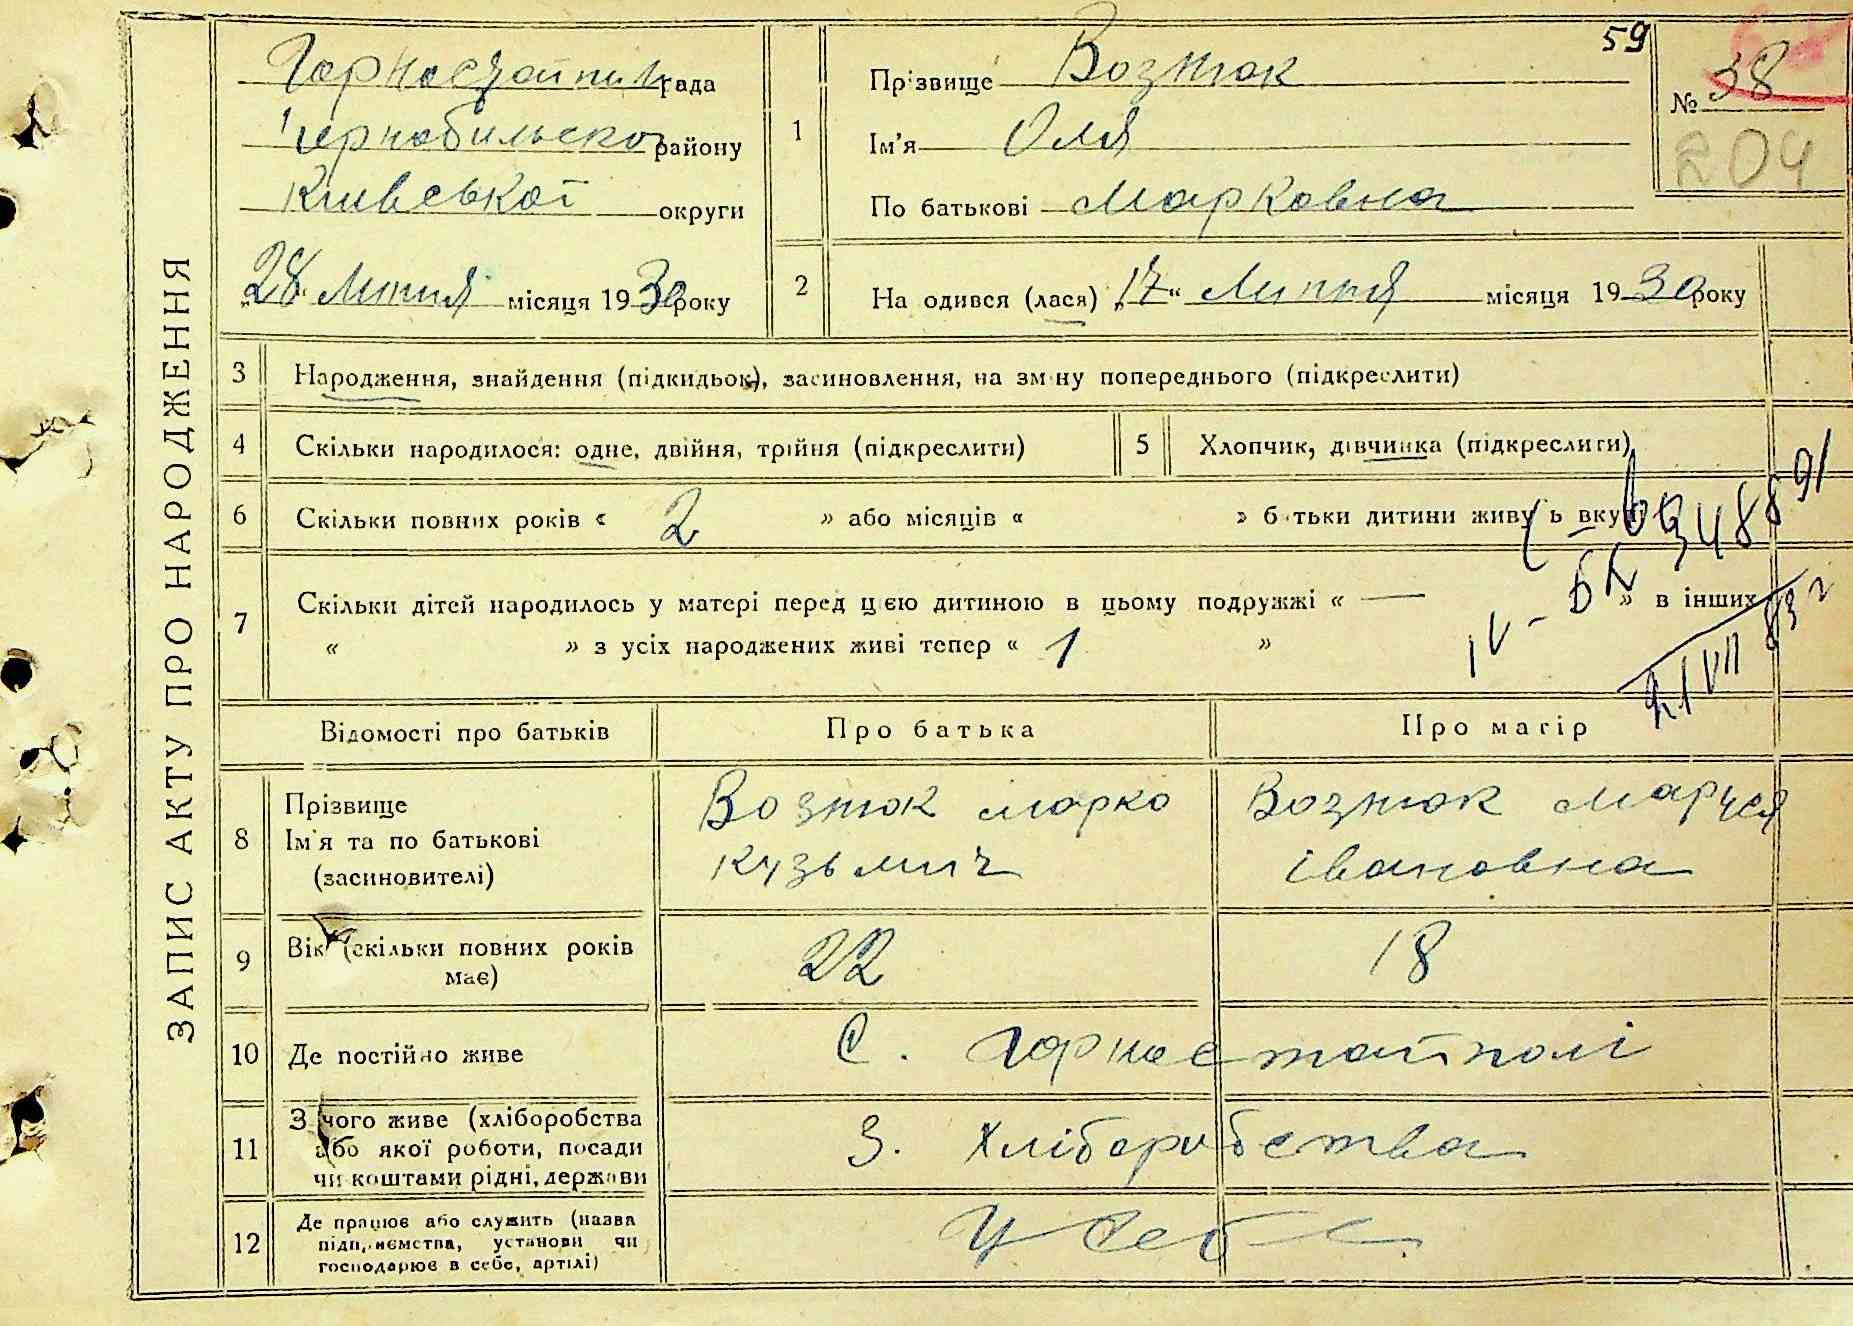 ЗАПИС АКТУ ПРО НАРОДЖЕННЯ
59
Горностайпил рада
Чернобильско району
Київської округи
„28“ Липня місяця 1930 року
1
Прізвище Вознюк
Ім'я Оля
По батькові Марковна
№ 38
204
2
На одився (лася) „17“ Липня місяця 1930 року
3 Народження, знайдення (підкидьок), засиновлення, на зміну попереднього (підкреслити)
4 Скільки народилося: одне, двійня, трійня (підкреслити)
5 Хлопчик, дівчинка (підкреслити)
6 Скільки повних років « 2 » або місяців « » батьки дитини живуть вкупі
7 Скільки дітей народилось у матері перед цією дитиною в цьому подружжі « — » в інших
« » з усіх народжених живі тепер « 1 »
IV-БК 
21 VII 83 г
Відомості про батьків Про батька Про матір
8 Прізвище
Ім'я та по батькові
(засиновителі)
Вознюк Марко
Кузьмич
Вознюк Маруся
Івановна
9 Вік (скільки повних років
має)
22 18
10 Де постійно живе С. Горностайполі
11 З чого живе (хліборобства
або якої роботи, посади
чи коштами рідні, держави
З. Хліборобства
12 Де працює або служить (назва
підприємства, установи чи
господарює в себе, артілі)
У себе